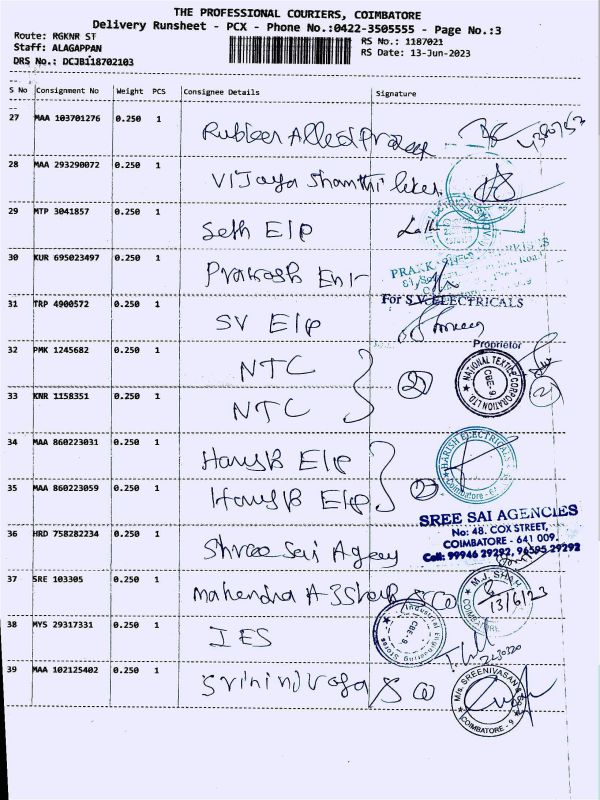 THE PROFESSIONAL COURIERS, COIMBATORE
Delivery Runsheet - PCX - Phone No.:0422-3505555 - Page No.:3
Route: RGKNR ST
RS No.: 1187021
Staff: ALAGAPPAN
RS Date: 13-Jun-2023
DRS No.: DCJB118702103
S No Consignment No Weight PCS Consignee Details Signature
27 MAA 103701276 0.250 1 Rubber Allied
28 MAA 293290072 0.250 1 Vijaya Shanthi
29 MTP 3041857 0.250 1 Seth Elp
30 KUR 695023497 0.250 1 Prakash Ent
For S.V. ELECTRICALS
31 TRP 4900572 0.250 1 SV Elp
Proprietor
32 PMK 1245682 0.250 1 NTC
NATIONAL TEXTILE CORPORATION LTD. CBE-9
2
33 KNR 1158351 0.250 1 NTC
34 MAA 860223031 0.250 1 Harish Elp
HARISH ELECTRICALS
35 MAA 860223059 0.250 1 Harish Elp
2
SREE SAI AGENCIES
No: 48. COX STREET,
COIMBATORE - 641 009.
Cell: 99946 29292, 96595 29292
36 HRD 758282234 0.250 1 Shree Sai Agency
37 SRE 103305 0.250 1 Mahendra A Shah & Co
M.J. SHAH
13/6/23
38 MYS 29317331 0.250 1 IES
Industrial Engineering Stores CBE-9
39 MAA 102125402 0.250 1 & Co
M/s. SREENIVASAN
COIMBATORE - 9